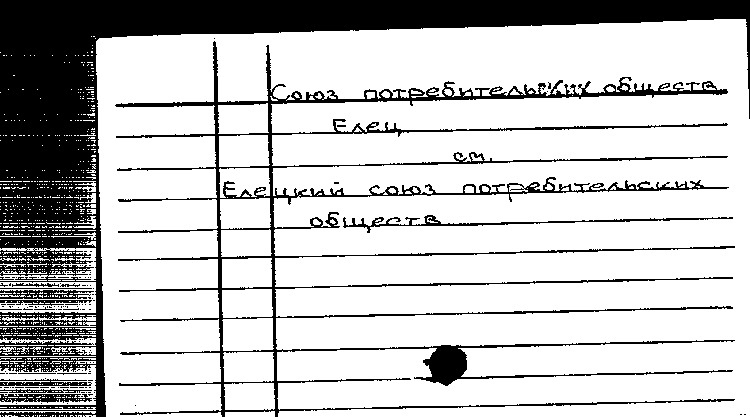 Союз потребительских обществ
Елец
см.
Елецкий союз потребительских
обществ